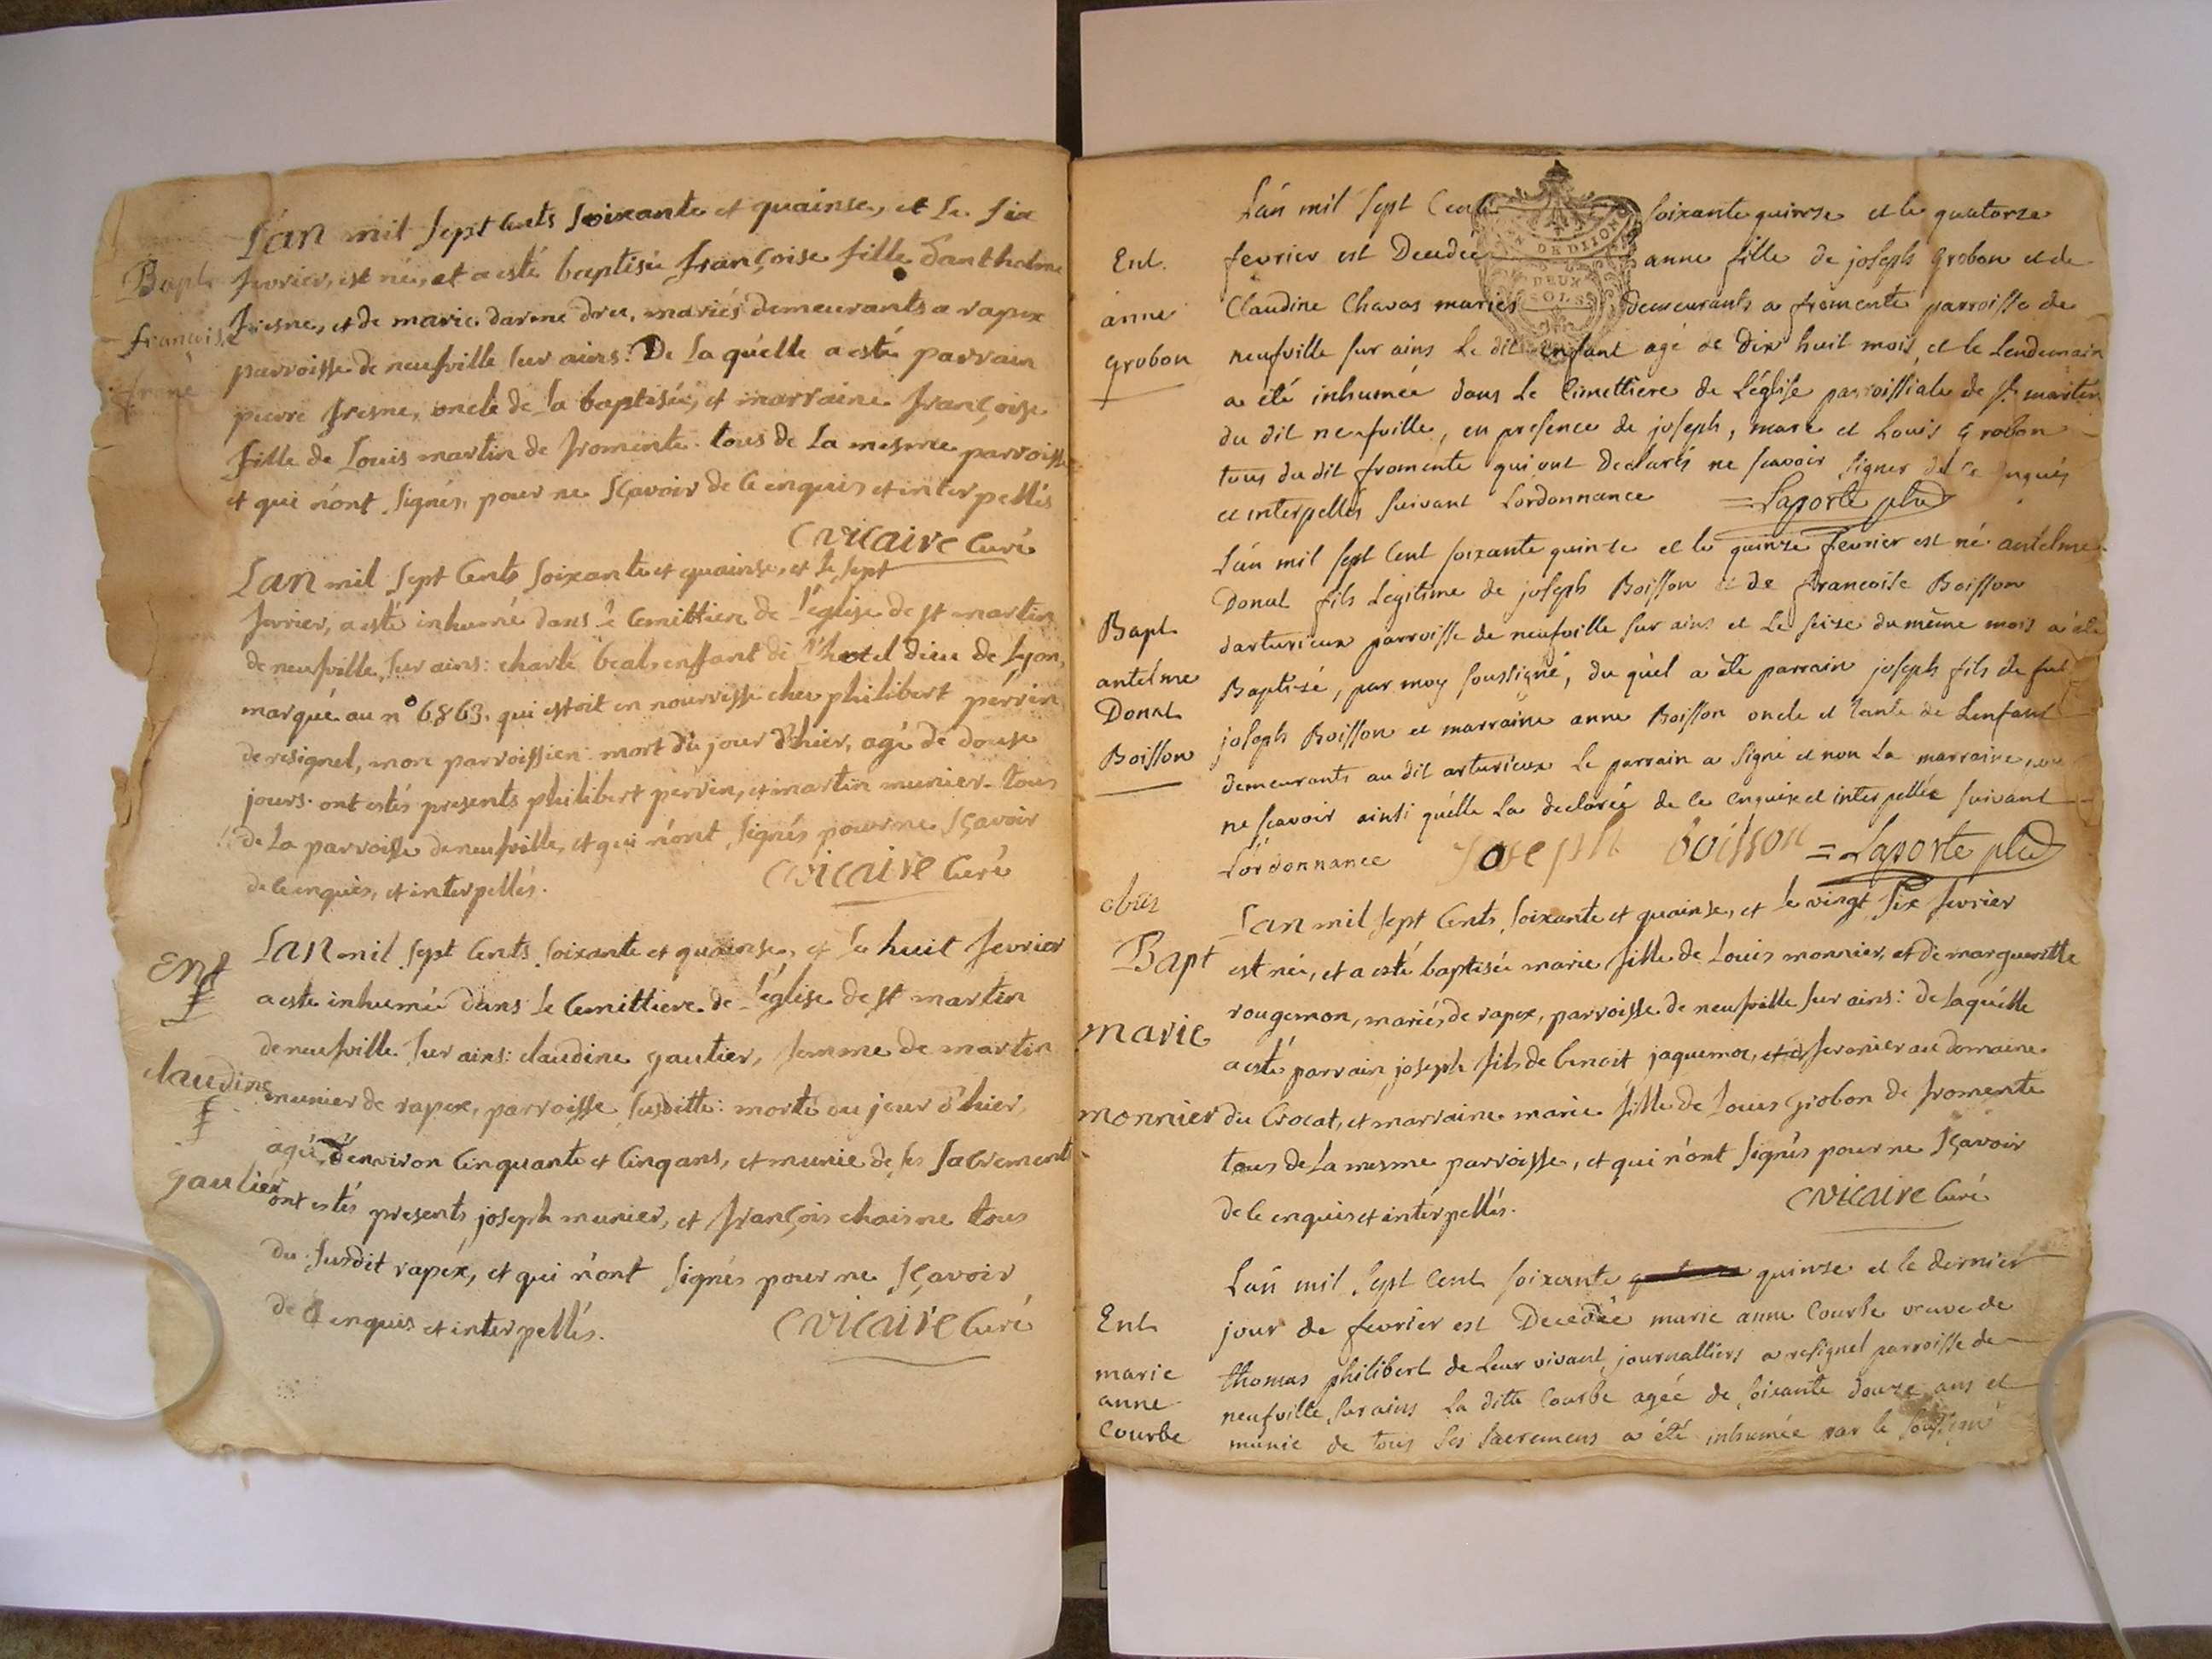 Bapt
françoise
frene
L'an mil sept cents soixante et quainse, et le six
fevrier, est née, et a esté baptisée françoise fille d'antholme
fresne, et de marie darme dru, mariés demeurants a rapex
parroisse de neufville sur ains: De la qu'elle a esté parrain
pierre fresne, oncle de la baptisée, et marraine françoise
fille de Louis martin de fromente. tous de la mesme parroisse
et qui n'ont signés, pour ne sçavoir de ce enquis et interpellés
Cvicaire Curé
L'an mil sept Cents soixante et quainse, et le sept
fevrier, a esté inhumé dans le Cemittiere de l'eglise de st martin
de neufville sur ains: charle béal, enffant de l'hotel dieu de Lyon,
marqué au n° 6863. qui estoit en nourrisse cheu philibert perrin
de resignel, mon parroissien: mort du jour d'hier, agé de douse
jours. ont estés presents philibert perrin, et martin munier. tous
de la parroisse de neufville, et qui n'ont signés pour ne sçavoir
de ce enquis, et interpellés.
Cvicaire Curé
Ent
claudine
gautier
L'an mil sept Cents soixante et quainse, et le huit fevrier
a esté inhumée dans le Cemittiere de l'église de st martin
de neufville sur ains: claudine gautier, femme de martin
munier de rapex, parroisse susditte: morte du jour d'hier,
agée d'environ Cinquante et Cinq ans, et munie de ses sacrements
ont estés presents joseph munier, et françois chaisne tous
du susdit rapéx, et qui n'ont signés pour ne sçavoir
de ce enquis et interpellés.
Cvicaire Curé
Ent.
anne
grobon
L'an mil sept Cent soixante quinze et le quatorze
fevrier est Decedée anne fille de joseph grobon et de
Claudine Chavas mariés demeurants a fromente parroisse de
neufville sur ains le dit enfant agé de dix huit mois, et le lendemain
a été inhumée dans le Cimettiere de L'église parroissiale de st martin
du dit neufville, en presence de joseph, marc et Louis grobon
tous du dit fromente qui ont declarés ne scavoir signer de ce enquis
et interpellés suivant Lordonnance
= Laporte
DEUX
SOLS
Bapt
antelme
Donat
Boisson
L'an mil sept Cent soixante quinze et le quinze fevrier est né antelme
Donat fils Légitime de joseph Boisson et de francoise Boisson
darturieux parroisse de neufville sur ains et le seize du même mois a été
Baptizé, par moy soussigné, du qu'el a été parrain joseph fils de fut
joseph Boisson et marraine anne Boisson oncle et tante de Lenfant
demeurants au dit arturieux le parrain a signé et non la marraine, pour
ne scavoir ainsi qu'elle La declaré de ce enquise et interpellée suivant
L'ordonnance
joseph boisson
= Laporte
Bapt
marie
monnier
L'an mil sept Cents soixante et quainse, et le vingt six fevrier
est née, et a esté baptisée marie fille de Louis monnier, et de margueritte
rougemon, mariés de rapex, parroisse de neufville sur ains: de laqu'elle
a esté parrain joseph fils de benoit jaquemoz, fermier au domaine
du Crocat, et marraine marie fille de Louis grobon de fromente
tous de la mesme parroisse, et qui n'ont signés pour ne sçavoir
de ce enquis et interpellés.
Cvicaire Curé
Ent
marie
anne
Courbe
L'an mil sept Cent soixante quinze et le dernier
jour de fevrier est Decedée marie anne Courbe veuve de
thomas philibert de leur vivant journalliers a resignel parroisse de
neufville sur ains la ditte Courbe agée de soixante douze ans et
munie de tous ses sacremens a été inhumée par le soussigné